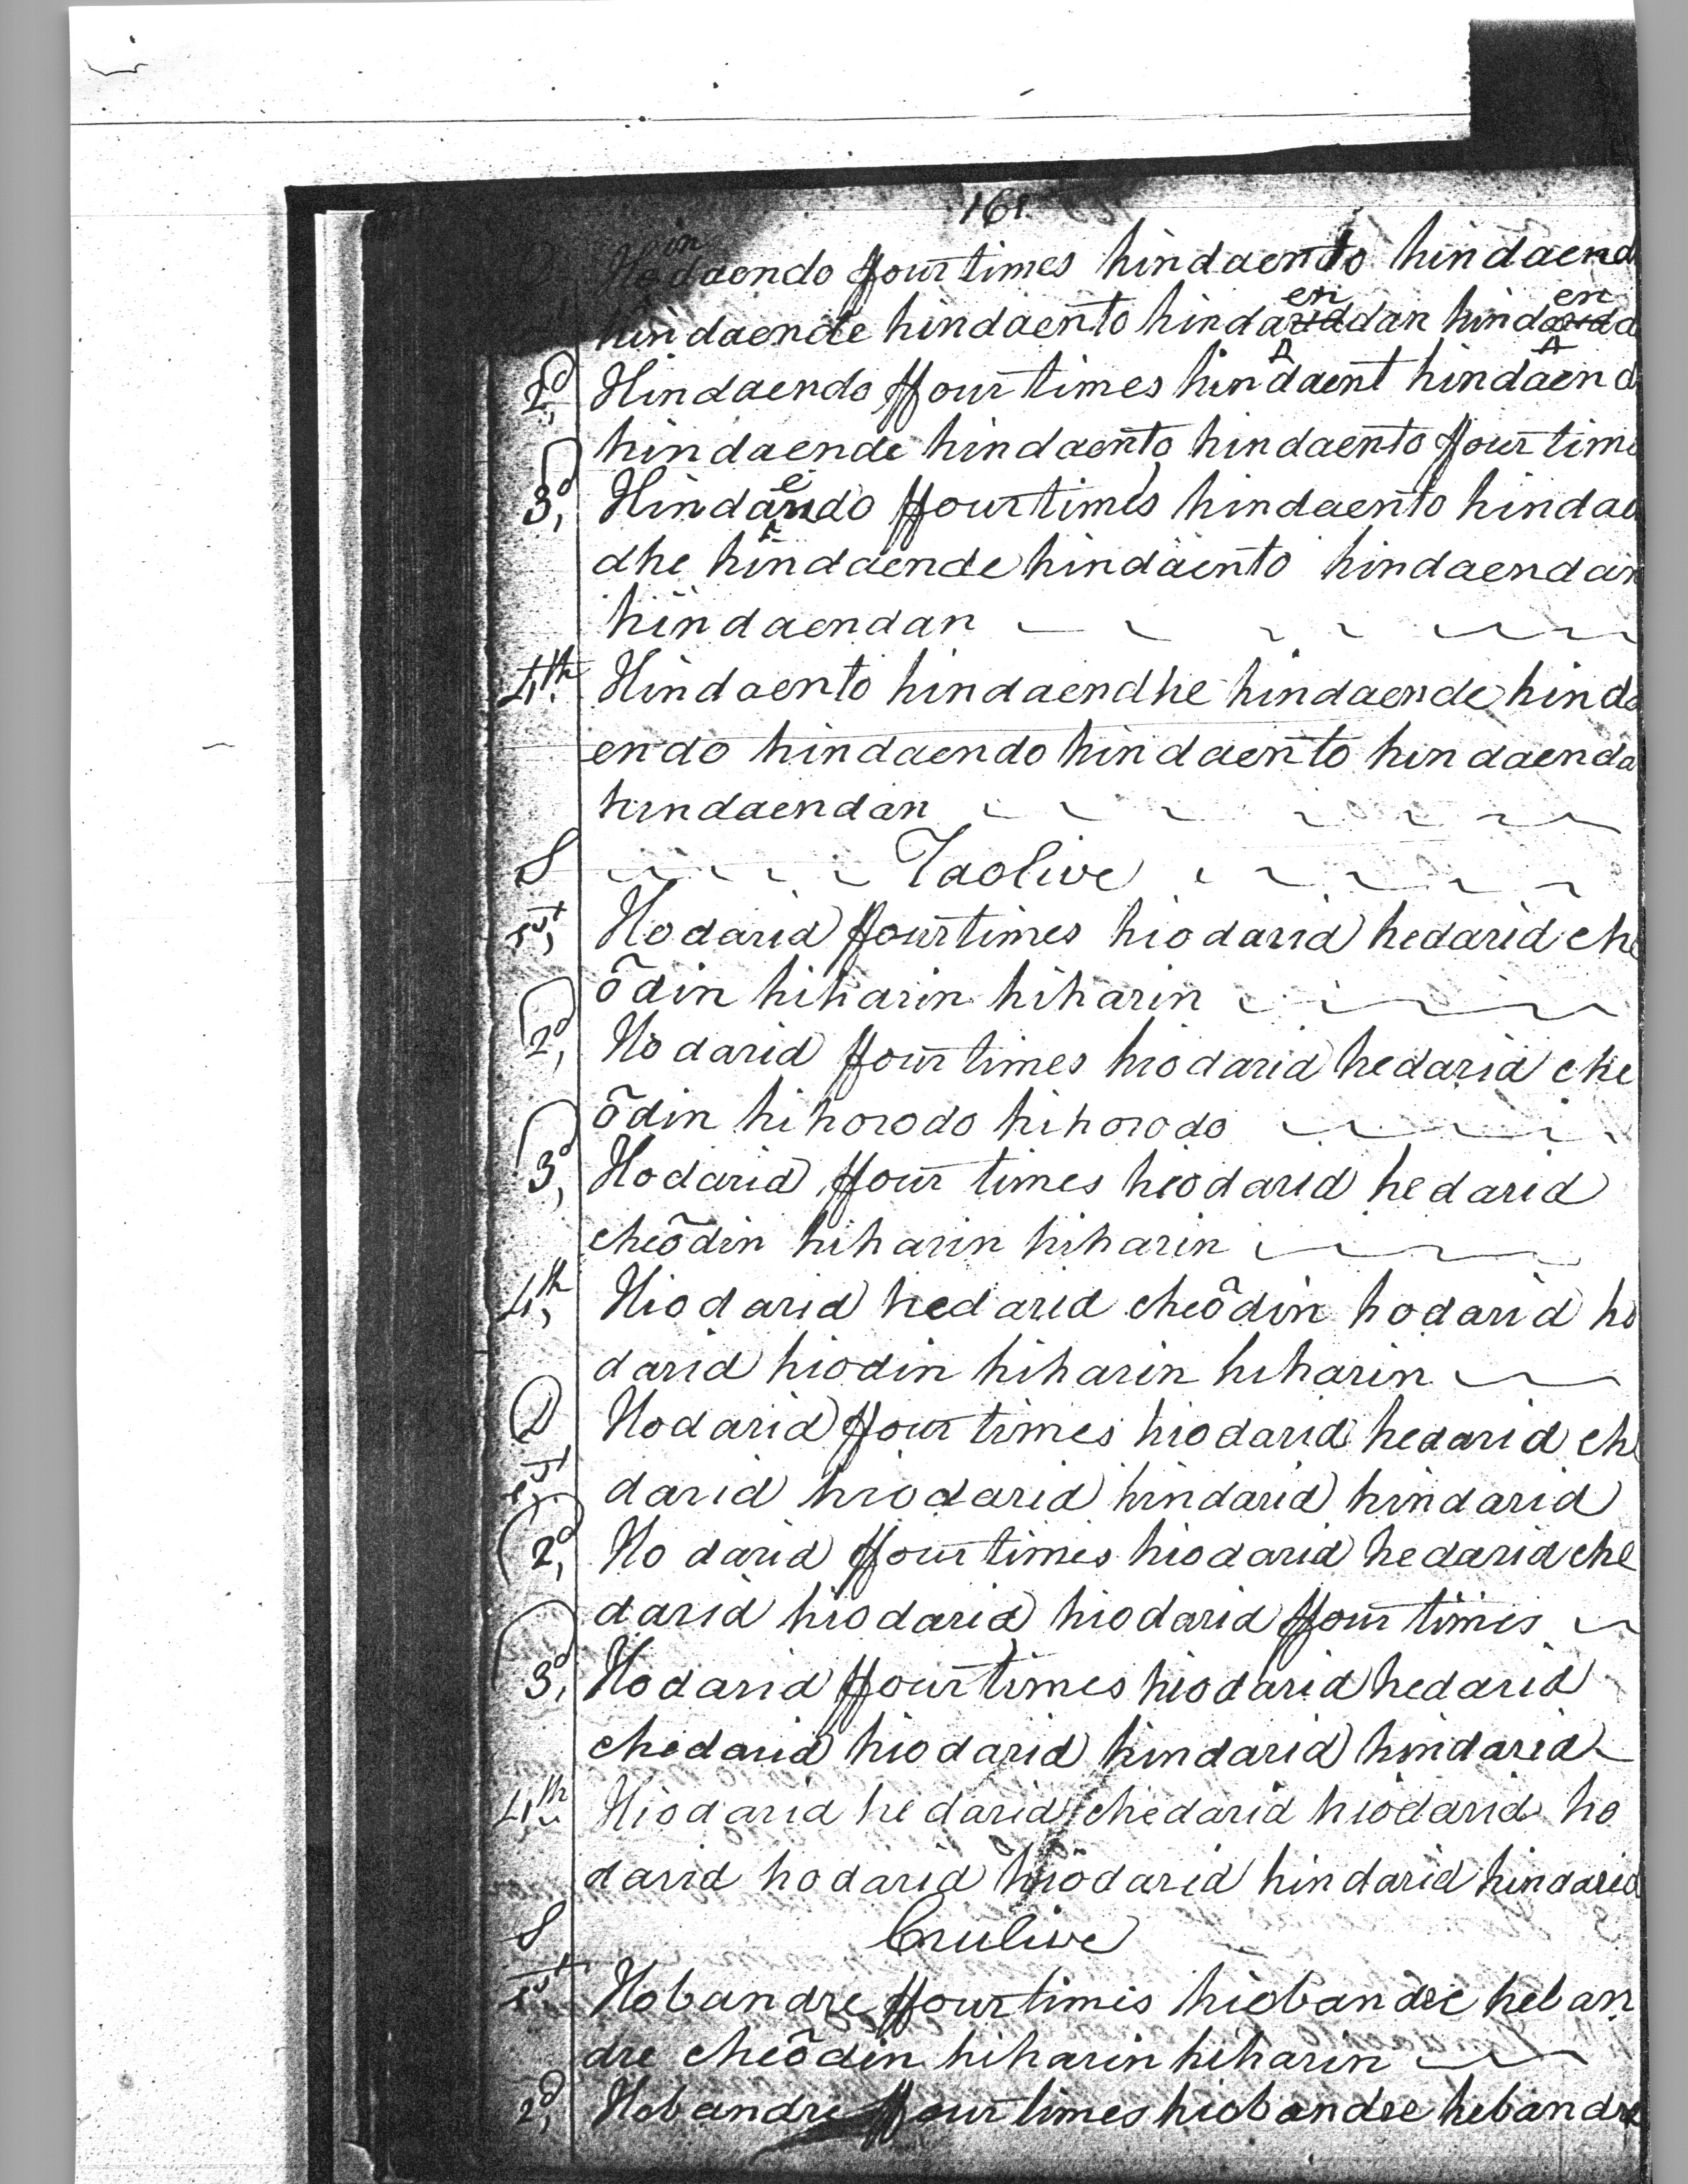 161
D Hindaendo ffour times hindaento hindaend
hindaende hindaento hindaendan hindaenda
2d, Hindaendo ffour times hindaent hindaend
hindaende hindaento hindaento ffour time
3d, Hindaendo ffour times hindaento hindae
dhe hindaende hindaento hindaendan
hindaendan
4th, Hindaento hindaendhe hindaende hinda
endo hindaendo hindaento hindaenda
hindaendan
S Taolive
1st, Hodarid ffour times hiodarid hedarid che
õdin hiharin hiharin
2d, Hodarid ffour times hiodarid hedarid che
õdin hihorodo hihorodo
3d, Hodarid ffour times hiodarid hedarid
cheõdin hiharin hiharin
4th, Hiodarid hedarid cheõdin hodarid ho
darid hiodin hiharin hiharin
D Hodarid ffour times hiodarid hedarid che
1st, darid hiodarid hindarid hindarid
2d, Hodarid ffour times hiodarid hedarid che
darid hiodarid hiodarid ffour times
3d, Hodarid ffour times hiodarid hedarid
chedarid hiodarid hindarid hindarid
4th, Hiodarid hedarid chedarid hiodarid ho
darid hodarid hiodarid hindarid hindarid
S Crulive
1st, Hobandre ffour times hiobandre heban
dre cheõdin hiharin hiharin
2d, Hobandre ffour times hiobandre hebandre